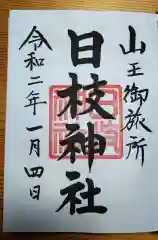 山王御旅所
日枝神社
令和二年一月四日